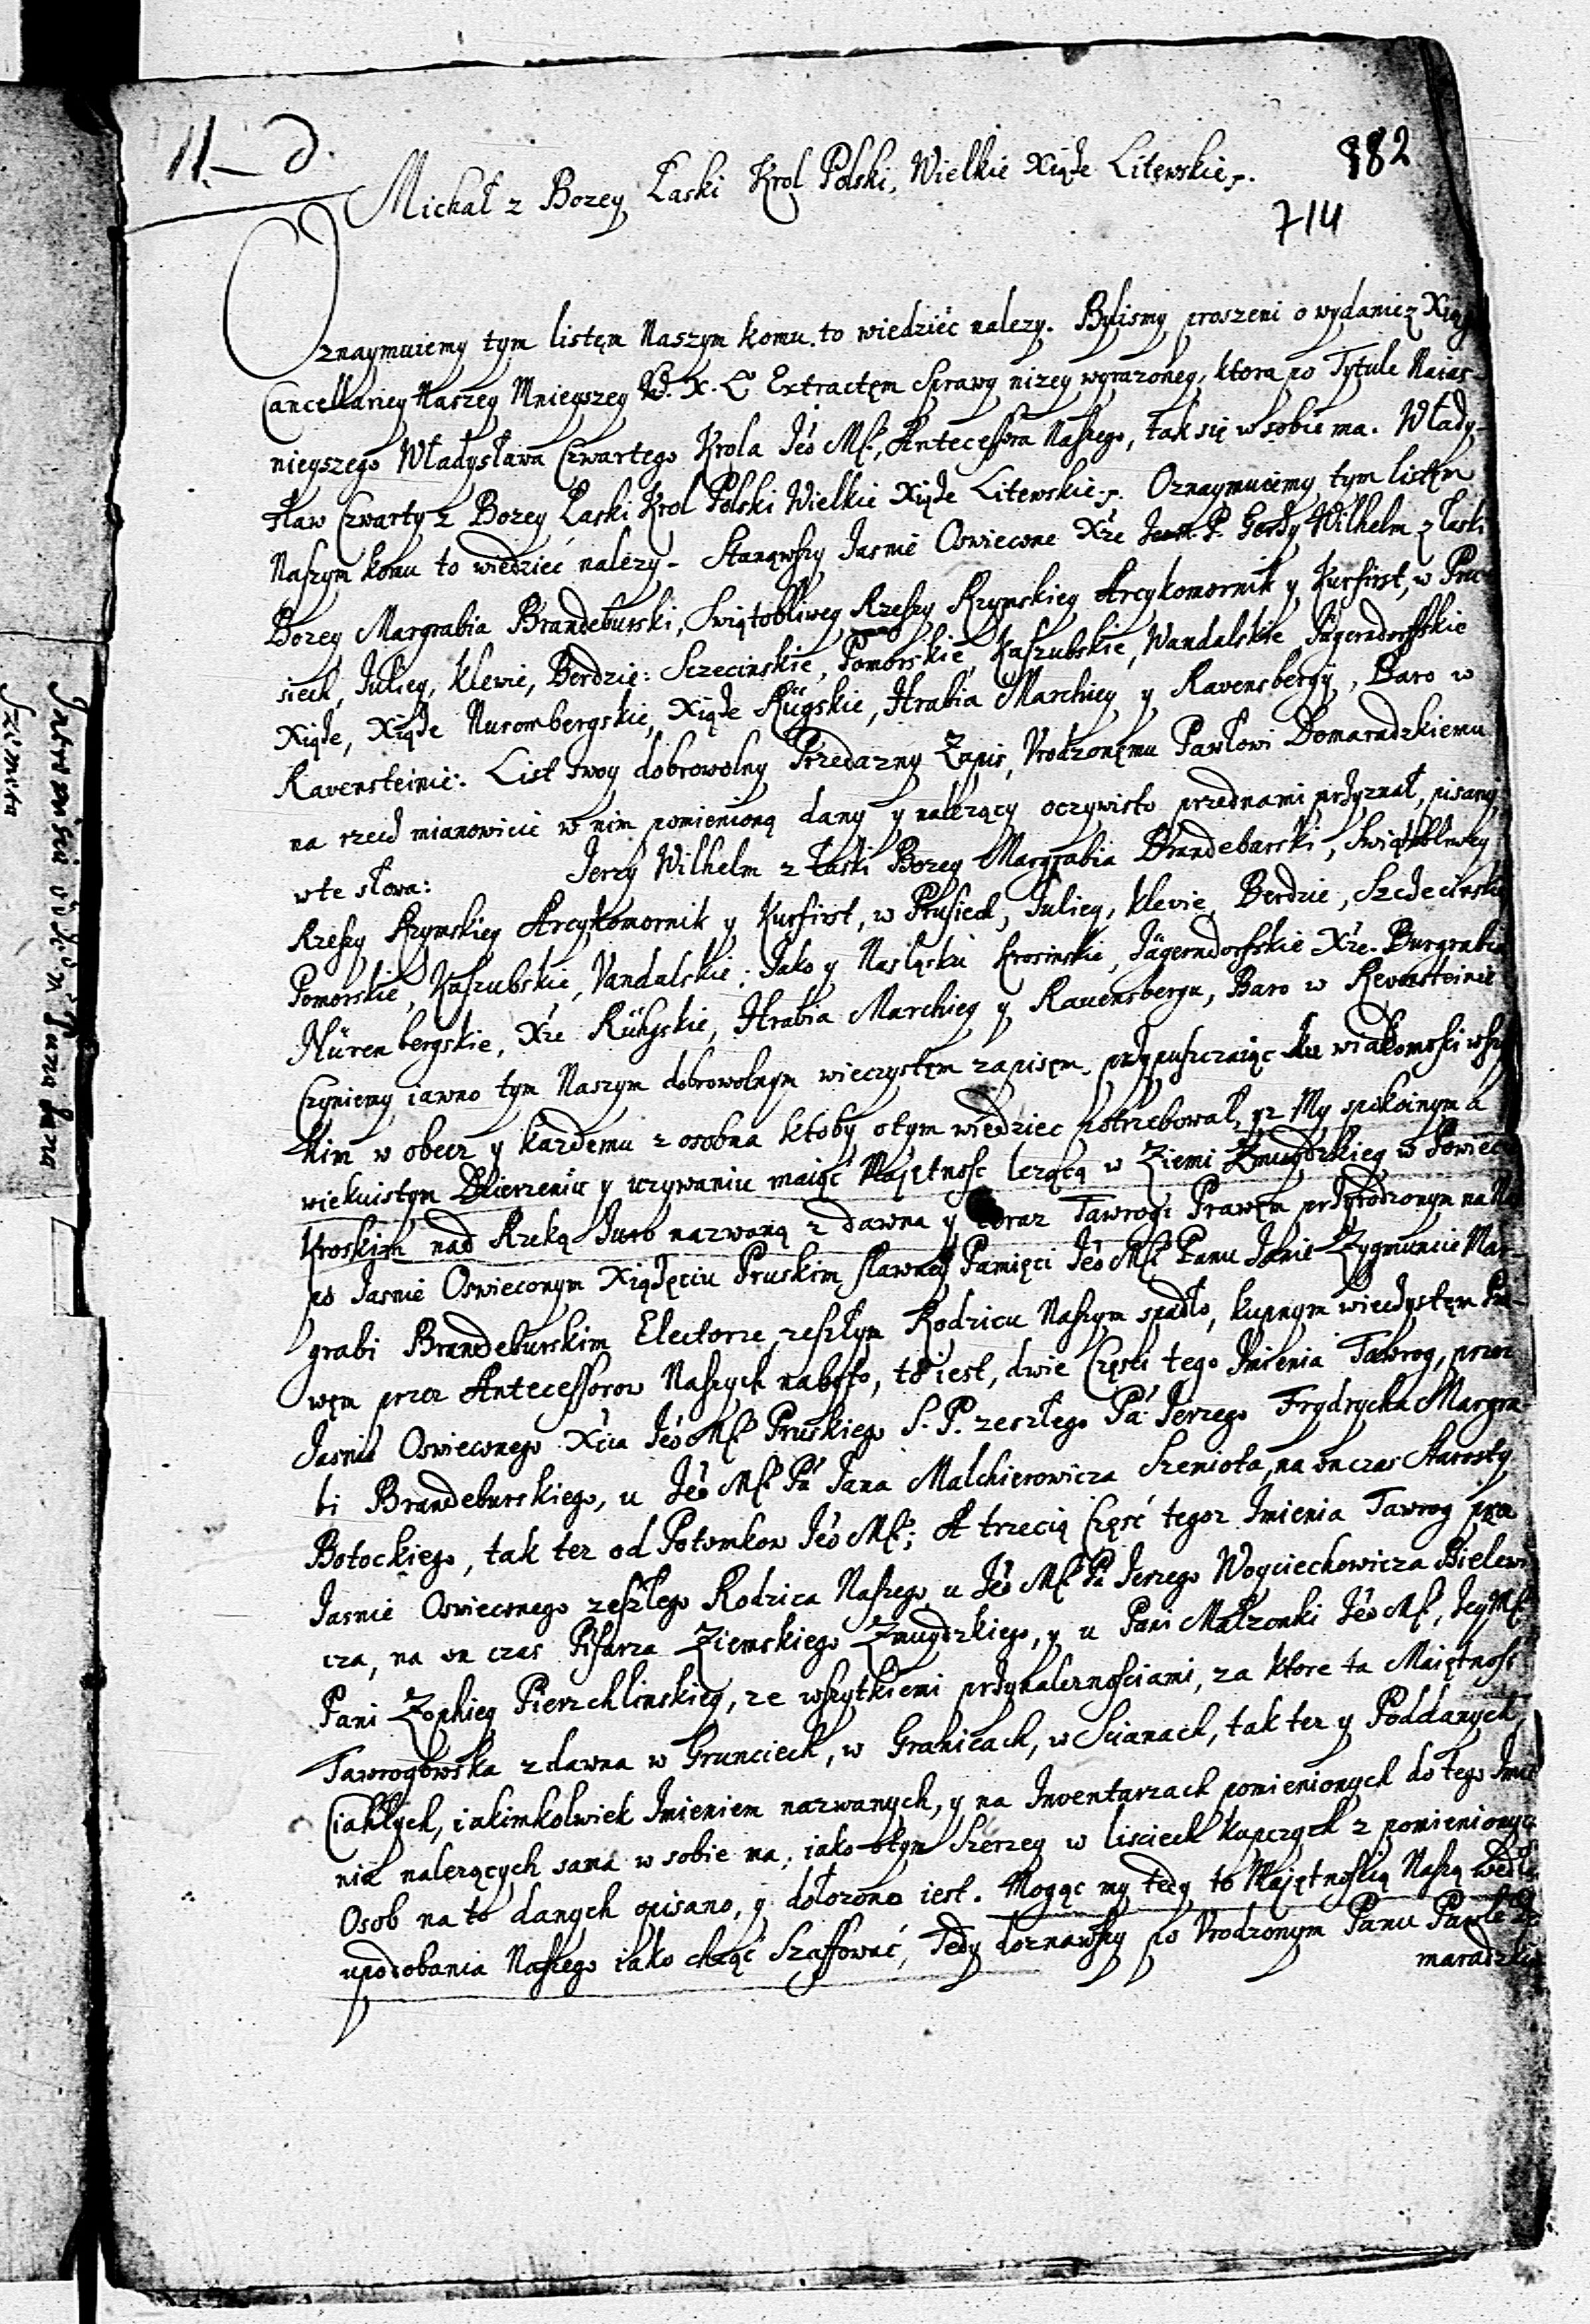 11_ d.
882
Michał z Bozey Łaski Krol Polski, Wielkie Xiąże Litewskie.
714
Oznaymuiemy tym listęm Naszym komu to wiedzieć nalezy. Bylismy proszeni o wydanie z Xiąg
Cancellariey Naszey Mnieyszey W. X. L Extractęm Sprawy nizey wyrazoney, ktora po Tytule Naias-
nieyszego Władysława Czwartego Krola Jeo Mſci, Antecessora Naszego, tak się w sobie ma. Włady-
sław Czwarty z Bozey Łaski Krol Polski Wielkie Xiąże Litewskie. Oznaymuiemy tym listęm
Naszym komu to wiedzieć nalezy. Stanąwszy Jasnie Oswiecone Xże P. Gerży Wilhelm z łaski
Bozey Margrabia Brandeburski, Swiątobliwey Rzeszy Rzymskiey Arcykomornik y Kurfirst, w Pru-
siech, Juliey, Klewie, Berdzie: Sczecinskie, Pomorskie, Kaszubskie, Wandalskie, Jägerndorffskie
Xiąże, Xiąże Nurombergskie, Xiąże Rügskie, Hrabia Marchiey y Ravensbergy, Baro w
Ravensteinie: List swoy dobrowolny Przedazny Zapis, Vrodzonęmu Pawłowi Domaradzkiemu
na rzecż mianowicie w nim pomienioną dany y nalezący oczywisto przednami prżyznał, pisany
wte słowa: Jerzy Wilhelm z łaski Bozey Margrabia Brandebarski, Swiątobliwey
Rzeszy Rzymskiey Arcykomornik y Kurfirst, w Prusiech, Juliey, Klevie, Berdzie, Szczecinskie
Pomorskie, Kaszubskie, Vandalskie: Jako y Nasląsku Krosinskie, Jägerndorfskie Xże. Burgrabia
Nürenbergskie, Xże Rühgskie, Hrabia Marchiey y Rauensbergu, Baro w Revensteinie
Czyniemy iawno tym Naszym dobrowolnym wieczystęm zapisęm, przypuszczaiąc ku wiadomosci wszyt
kim w obecz y każdemu z osobna ktoby otym wiedziec potrzebował, yz My spokoinym a
wiekuistym Dzierzeniu y uzywaniu maiąc Maiętnosc lezącą w Ziemi Zmuydzkiey w Powiecie
Kroskim nad Rzeką Jurą nazwaną z dawna y teraz Tawrogi Prawęm prżyrodzonym na Nas
po Jasnie Oswieconym Xiążęciu Pruskim sławney Pamięci Jeo Mſci Panu Janie Zygmuncie Mar-
grabi Brandeburskim Electorze, zeszłym Rodzicu Naszym spadło, kupnym wieczystęm Pra-
węm przez Antecessorow Naszych nabyto, to iest, dwie Częsci tego Jmienia Tawrog, przez
Jasnie Oswieconego Xcia Jeo Mſci Pruskiego S. P. zeszłego Pa: Jerzego Frydrycha Margra-
bi Brandeburskiego, u Jeo Mſci Pa Jana Malchierowicza Szemiota, na onczas Starosty
Botockiego, tak tez od Potomkow Jeo Mſci; A trzecią Częsć tegoz Jmienia Tawrog prze
Jasnie Oswieconego zeszłego Rodzica Naszego u Jeo Mſci Pa Jerzego Woyciechowicza Bielewi
cza, na on czas Pisarza Ziemskiego Zmuydzkiego, y u Pani Małzonki Jeo Mſci, Jey Mſci
Pani Zophiey Pierzchlinskiey, ze wszytkiemi prżynaleznosciami, za ktore ta Maiętnosc
Tawrogowska zdawna w Grunciech, w Granicach, w Scianach, tak tez y Poddanych
Ciahłych, iakimkolwiek Jmieniem nazwanych, y na Jnventarzach pomienionych do tego Jmie
nia nalezących sama w sobie ma, iako otym Szerzey w lisciech kupczych z pomienionych
Osob na to danych opisano, y dołozono iest. Mogąc my tedy to Maiętnoscią Naszą wedle
upodobania Naszego iako chcąc Szaffowac, Tedy doznawszy po Vrodzonym Panu Pawle Do
maradzkim